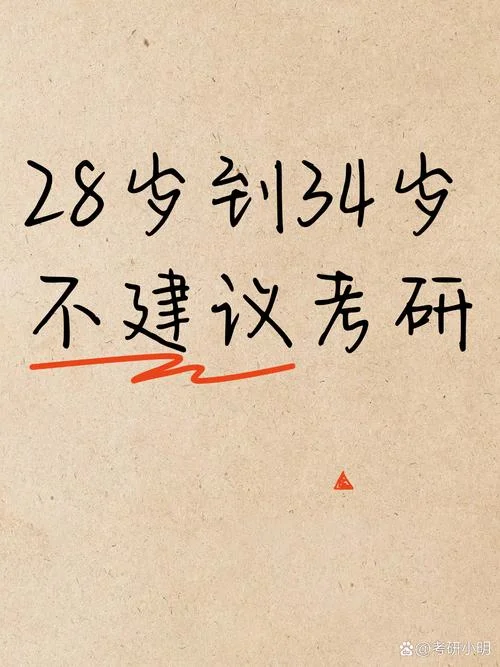 28岁到34岁
不建议考研
@考研小明